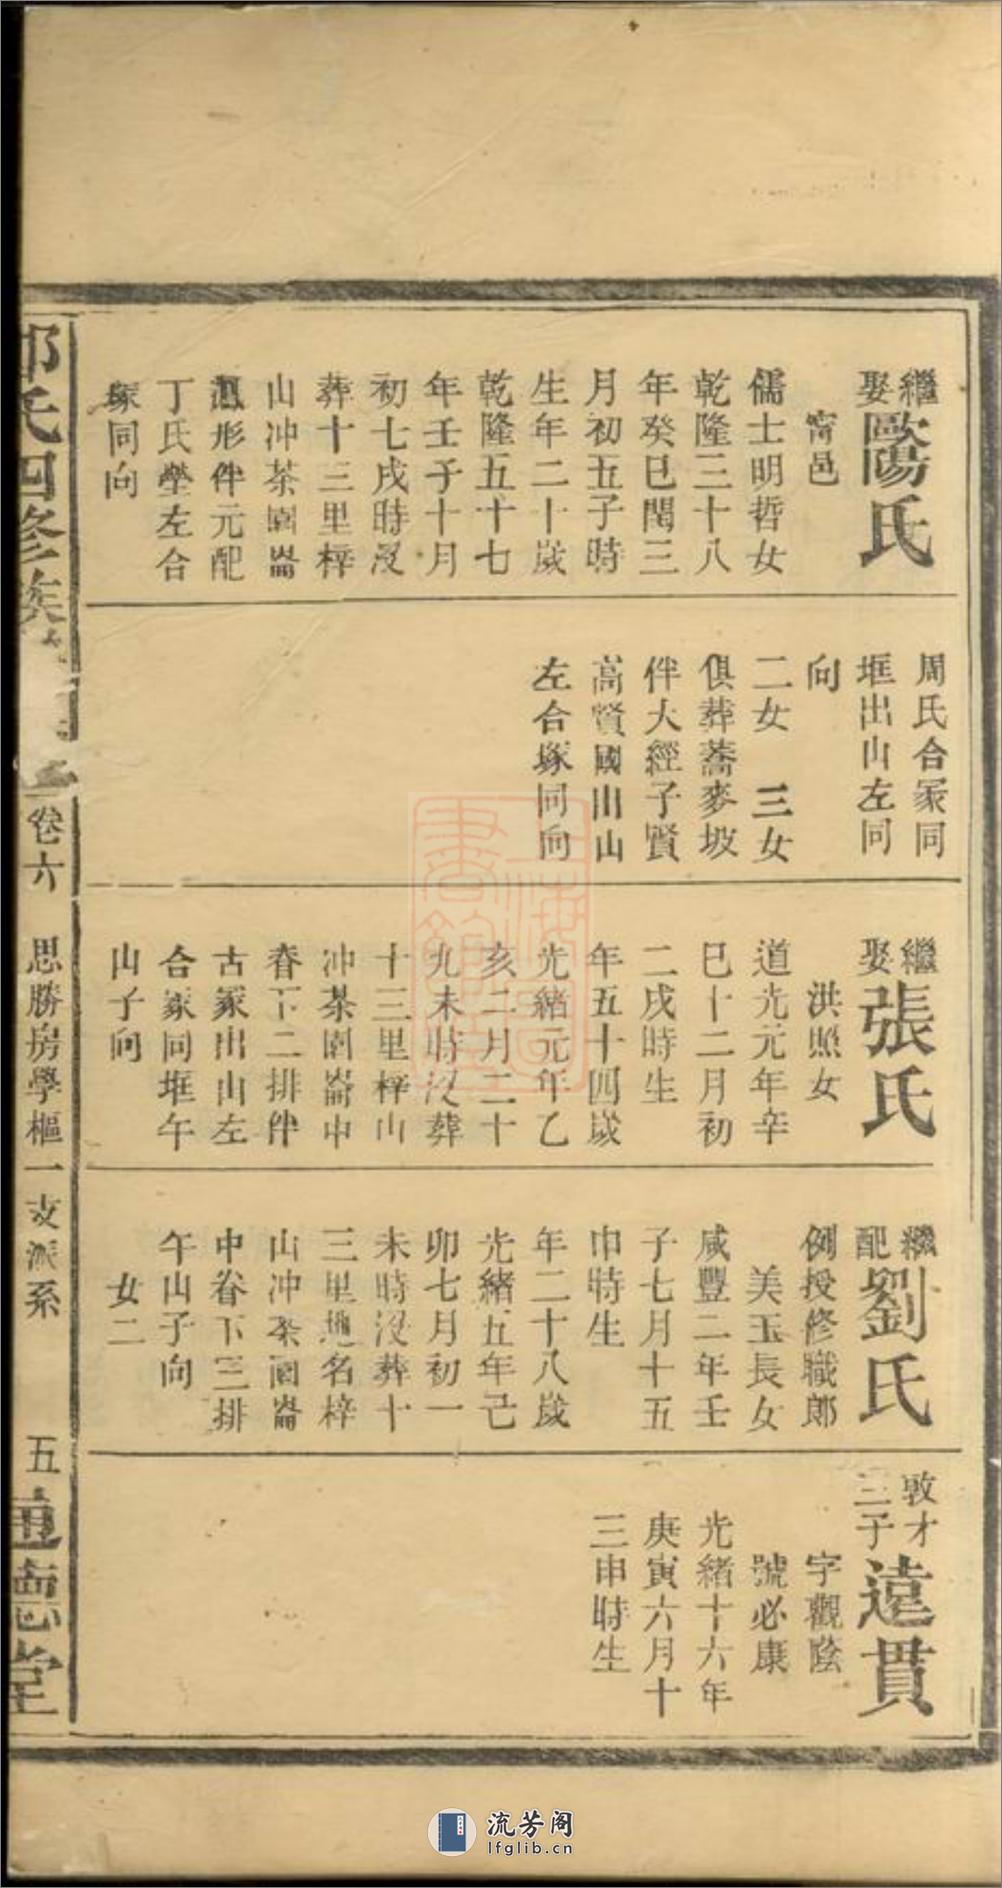 繼娶歐陽氏
甯邑
儒士明哲女
乾隆三十八
年癸巳閏三
月初五子時
生年二十歲
乾隆五十七
年壬子十月
初七戌時沒
葬十三里梓
山冲茶園崙
形伴元配
丁氏塋左合
塚同向
周氏合冢同
堆出山左同
向
二女 三女
俱葬蕎麥坡
伴大經子賢
高賢國出山
左合塚同向
繼娶張氏
洪照女
道光元年辛
巳十二月初
二戌時生
年五十四歲
光緒元年乙
亥二月二十
九未時沒葬
十三里梓山
冲茶園崙中
眷下二排伴
古冢出山左
合冢同堆午
山子向
繼配劉氏
例授修職郎
美玉長女
咸豐二年壬
子七月十五
巾時生
年二十八歲
光緒五年己
卯七月初一
未時沒葬十
三里地名梓
山冲茶園崙
中眷下三排
午山子向
女二
敦才三子遠貫
字觀陰
號必康
光緒十六年
庚寅六月十
三申時生
氏四修族
卷六
思勝房學樞一支派系
五
通德堂
流芳阁
lfglib.cn